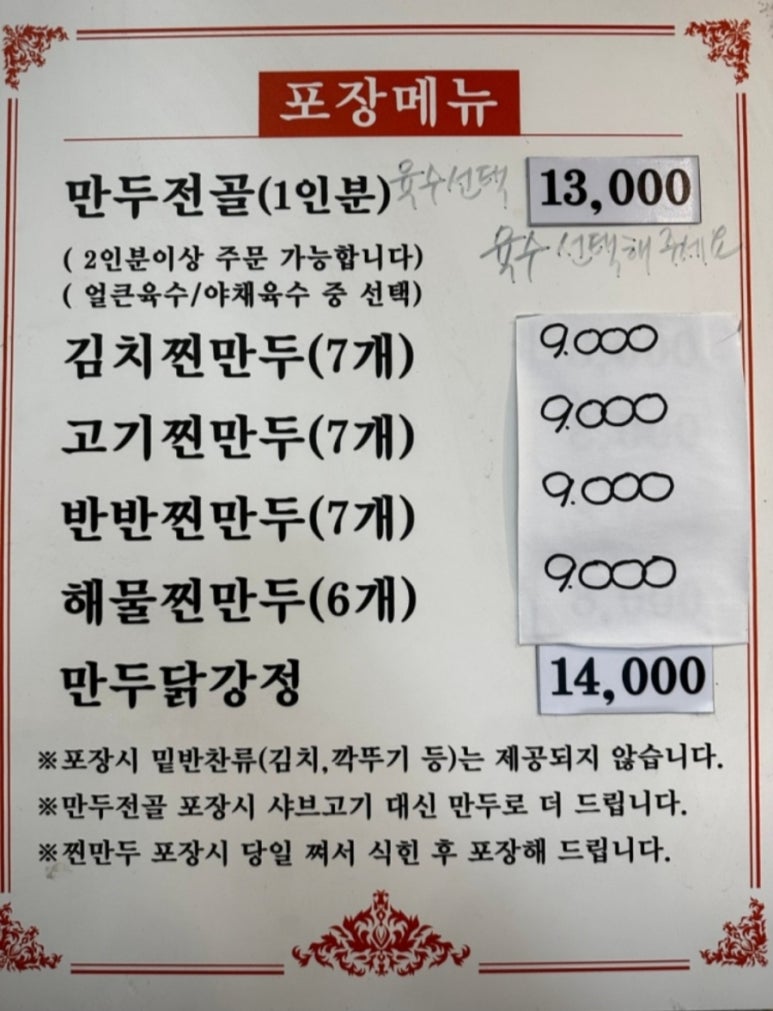 포장메뉴
만두전골(1인분) 육수선택 13,000
육수 선택해 주세요
( 2인분이상 주문 가능합니다)
( 얼큰육수/야채육수 중 선택)
김치찐만두(7개) 9.000
고기찐만두(7개) 9.000
반반찐만두(7개) 9.000
해물찐만두(6개) 9.000
만두닭강정 14,000
※포장시 밑반찬류(김치,깍뚜기 등)는 제공되지 않습니다.
※만두전골 포장시 샤브고기 대신 만두로 더 드립니다.
※찐만두 포장시 당일 쪄서 식힌 후 포장해 드립니다.